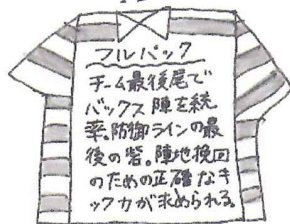 フルバック
チーム最後尾で
バックス陣を統
率。防御ラインの最
後の砦。陣地挽回
のための正確なキ
ック力が求められる。